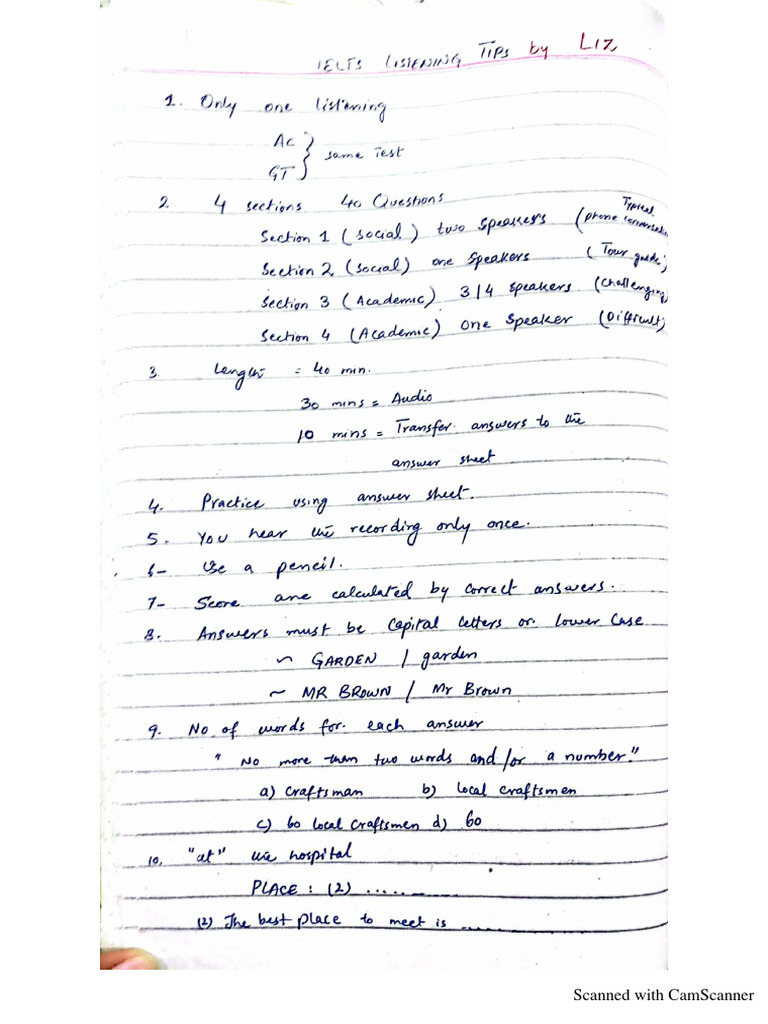 IELTS LISTENING TIPS by LIZ
1. Only one listening
Ac
GT } same Test
2. 4 sections 40 Questions
Section 1 (social) two speakers (Typical phone conversation
Section 2 (social) one speakers (Tour guide)
Section 3 (Academic) 3/4 speakers (challenging)
Section 4 (Academic) one speaker (Difficult)
3. Length = 40 min.
30 mins = Audio
10 mins = Transfer answers to the
answer sheet
4. Practice using answer sheet.
5. You hear the recording only once.
6- Use a pencil.
7- Score are calculated by correct answers.
8. Answers must be capital letters or lower case
~ GARDEN / garden
~ MR BROWN / Mr Brown
9. No of words for each answer
" No more than two words and/or a number."
a) craftsman b) local craftsmen
c) 60 local craftsmen d) 60
10. "at" the hospital
PLACE : (2) ..........
(2) The best place to meet is .....
Scanned with CamScanner